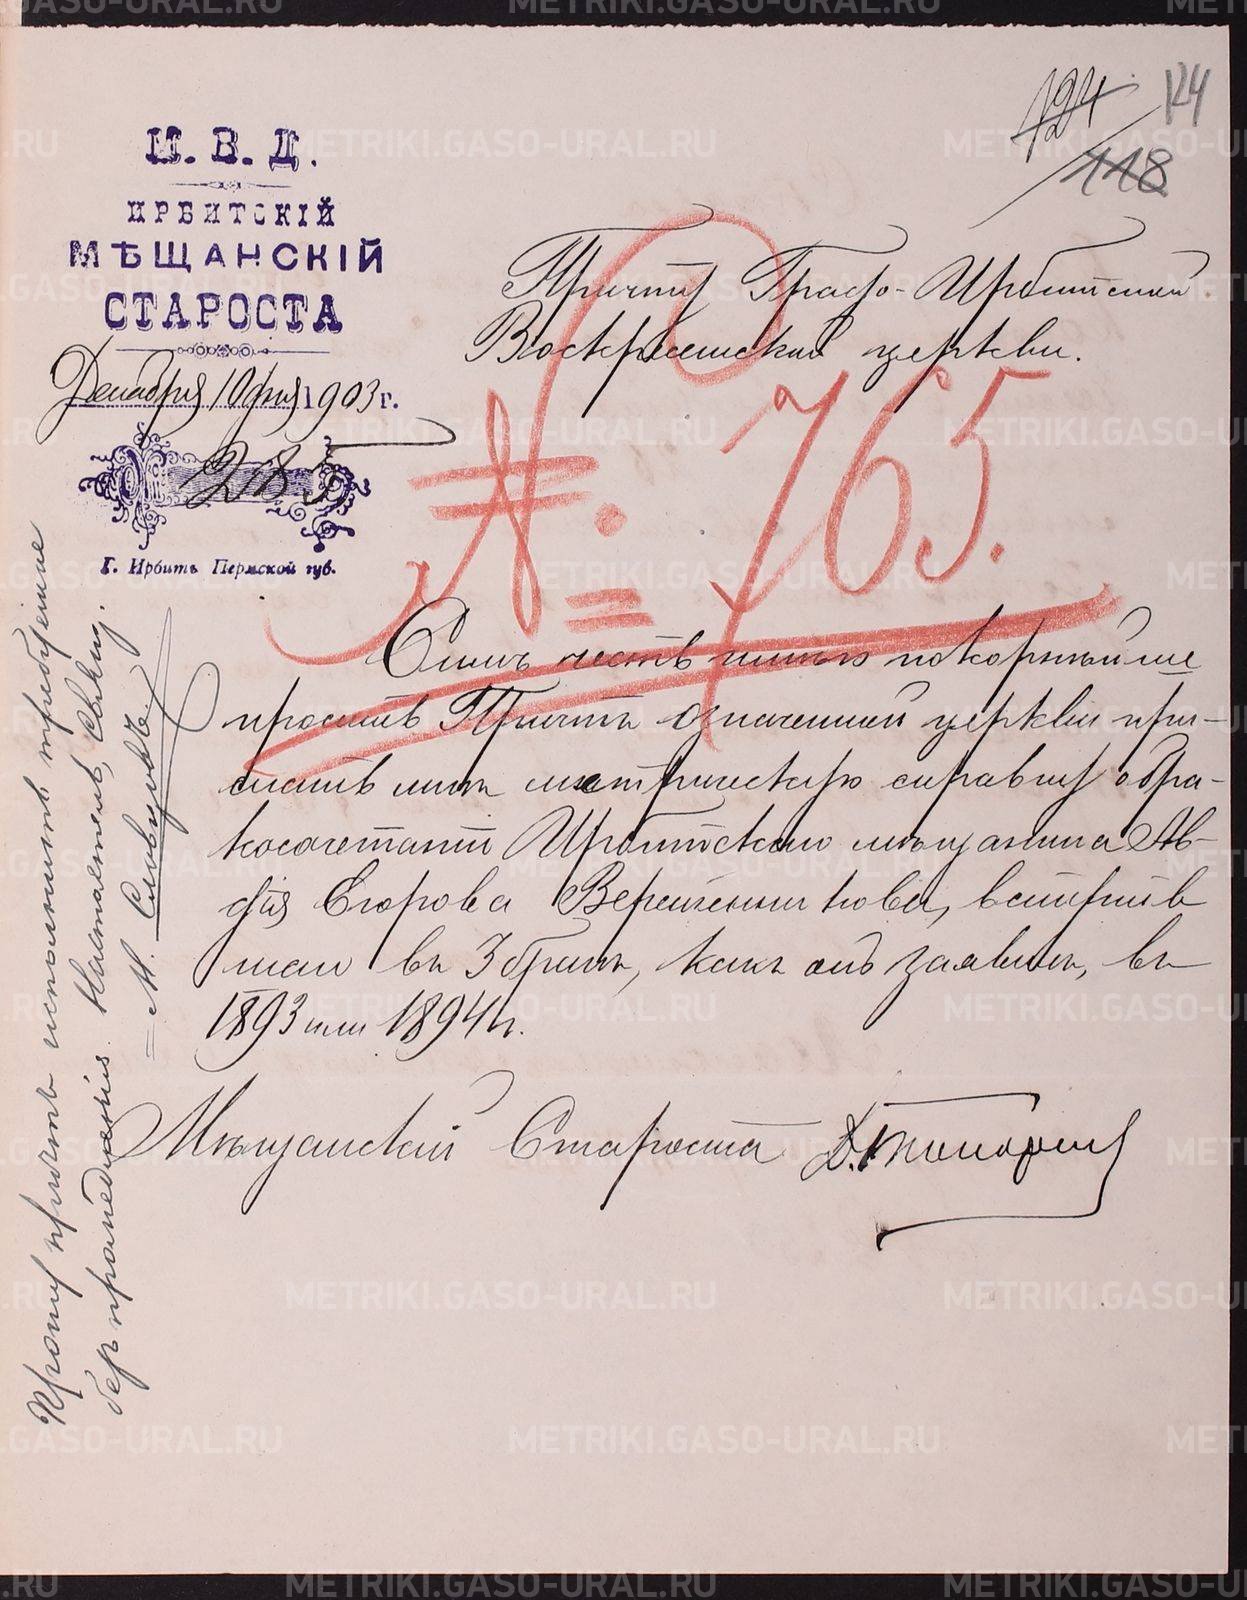 124
124
118
М. В. Д.
ИРБИТСКІЙ
МѢЩАНСКІЙ
СТАРОСТА
Декабря 10 дня 1903 г.
№ 285
Г. Ирбить Пермской губ.
Причту Градо-Ирбитской
Воскресенской церкви.
№. 765.
Симъ честь имѣю покорнѣйше
просить Причтъ означенной церкви при-
слать мнѣ метрическую справку о бра-
косочетаніи Ирбитскаго мѣщанина Ав-
дія Егорова Веретенникова, вступив
шаго въ 3 бракъ, какъ онъ заявилъ, въ
1893 или 1894 г.
Мѣщанскій Староста
Прошу причтъ исполнить требованіе
безъ промедленія. Настоятель, Свящ.
М. Словцовъ
METRIKI.GASO-URAL.RU